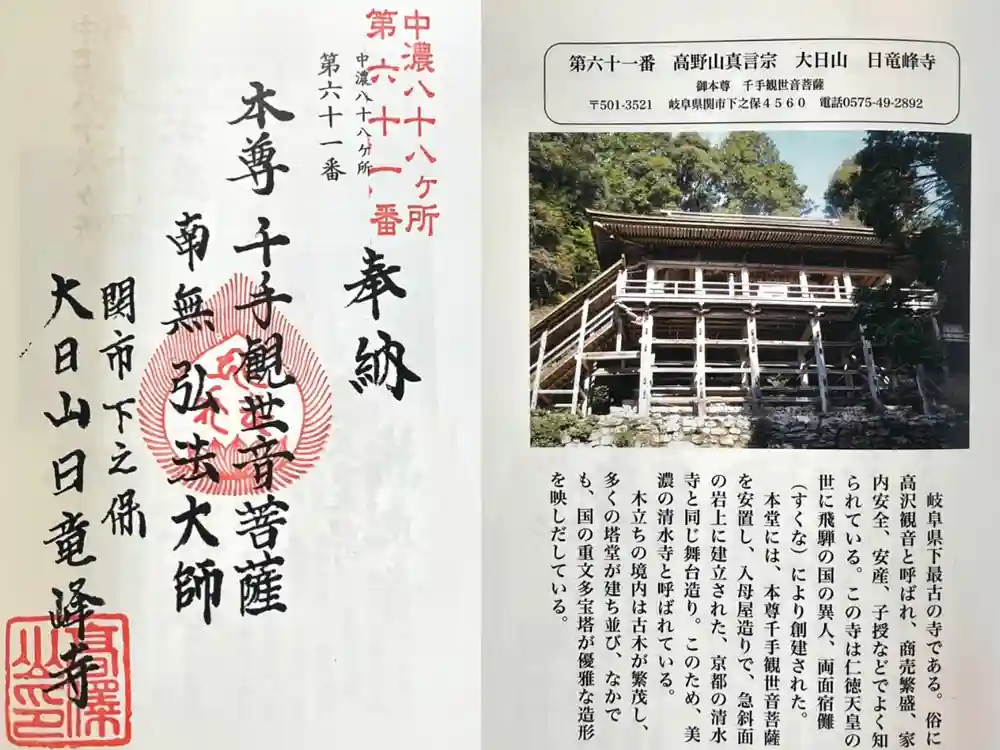 中濃八十八ヶ所
第六十一番
中濃八十八ヶ所
第六十一番
奉納
本尊 千手観世音菩薩
南無弘法大師
関市下之保
大日山日竜峰寺
第六十一番 高野山真言宗 大日山 日竜峰寺
御本尊 千手観世音菩薩
〒501-3521 岐阜県関市下之保4560 電話0575-49-2892
岐阜県下最古の寺である。俗に
高沢観音と呼ばれ、商売繁盛、家
内安全、安産、子授などでよく知
られている。この寺は仁徳天皇の
世に飛騨の国の異人、両面宿儺
(すくな)により創建された。
本堂には、本尊千手観世音菩薩
を安置し、入母屋造りで、急斜面
の岩上に建立された、京都の清水
寺と同じ舞台造り。このため、美
濃の清水寺と呼ばれている。
木立ちの境内は古木が繁茂し、
多くの塔堂が建ち並び、なかで
も、国の重文多宝塔が優雅な造形
を映しだしている。